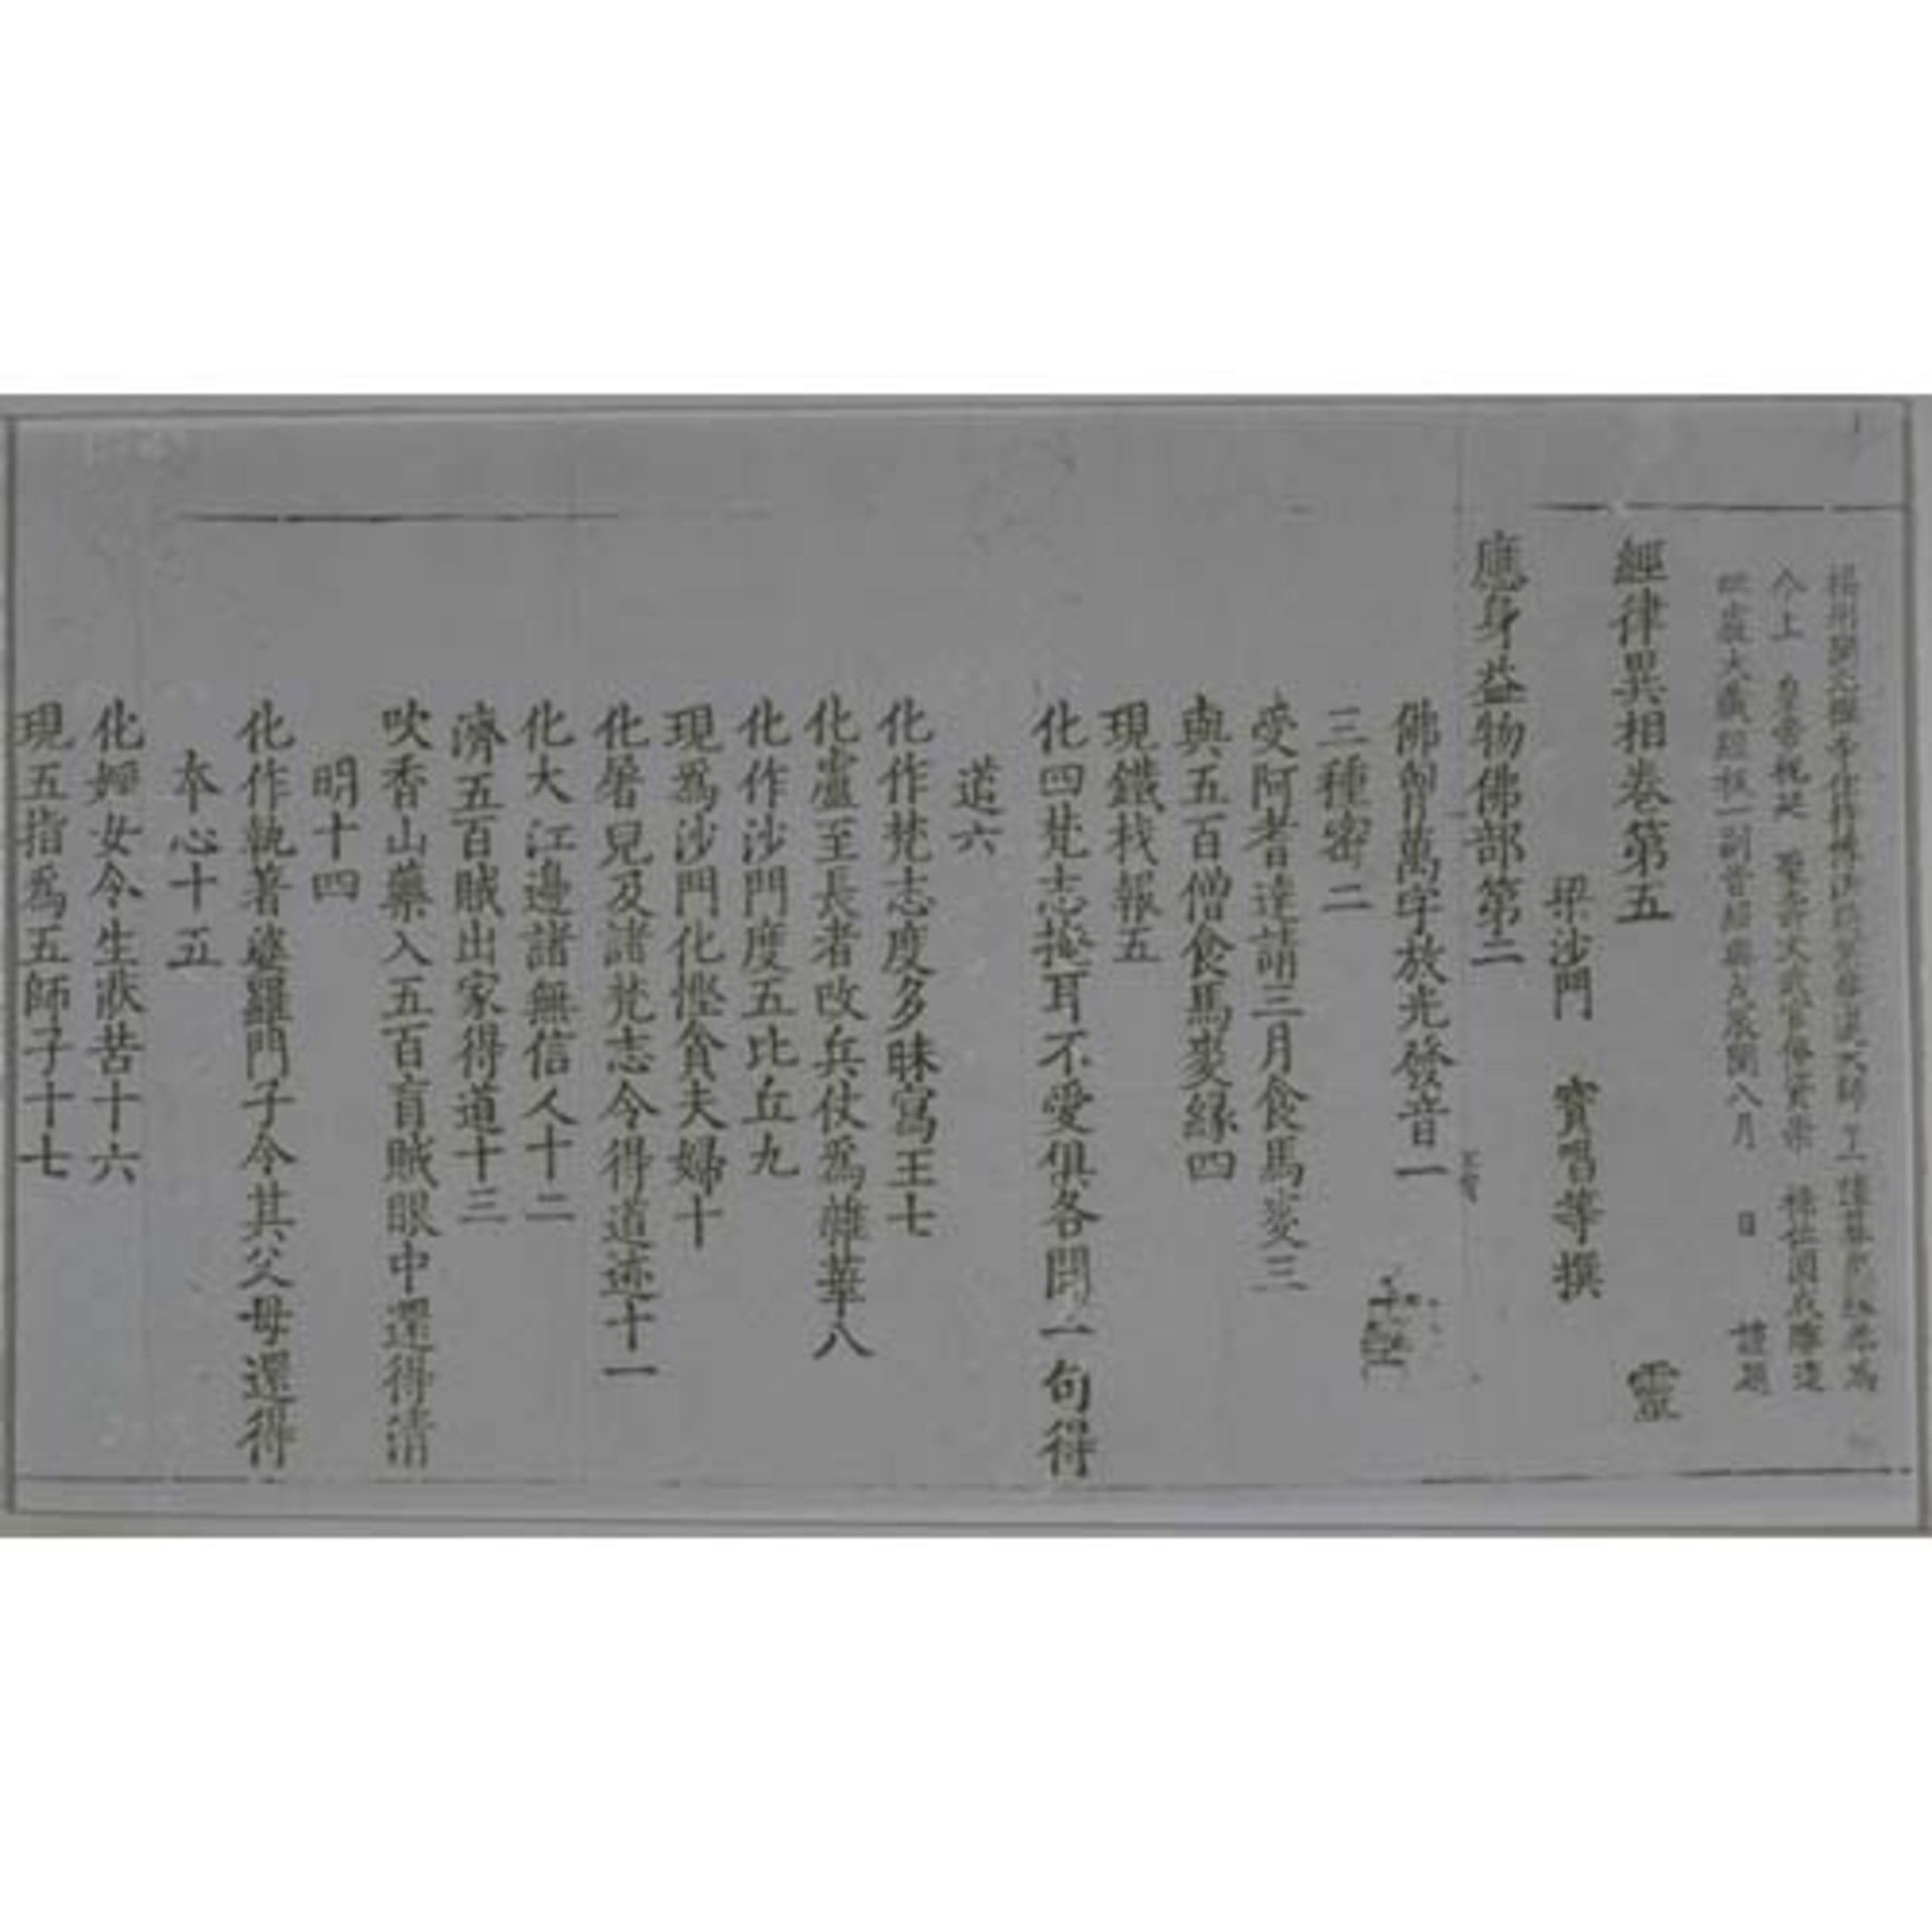 今上　皇帝祝延　聖壽
大藏經板一副 紹興戊辰閏八月　日　謹題
經律異相卷第五　靈
梁沙門　寶唱等撰
應身益物佛部第二
佛胷萬字放光發音一
三種密二
受阿耆達請三月食馬麥三
與五百僧食馬麥緣四
現鐵杙報五
化四梵志掩耳不受俱各聞一句得
道六
化作梵志度多昧寫王七
化盧至長者改兵仗爲雜華八
化作沙門度五比丘九
現爲沙門化慳貪夫婦十
化屠兒及諸梵志令得道迹十一
化大江邊諸無信人十二
濟五百賊出家得道十三
吹香山藥入五百盲賊眼中還得清
明十四
化作執著婆羅門子令其父母還得
本心十五
化婬女令生猒苦十六
現五指爲五師子十七